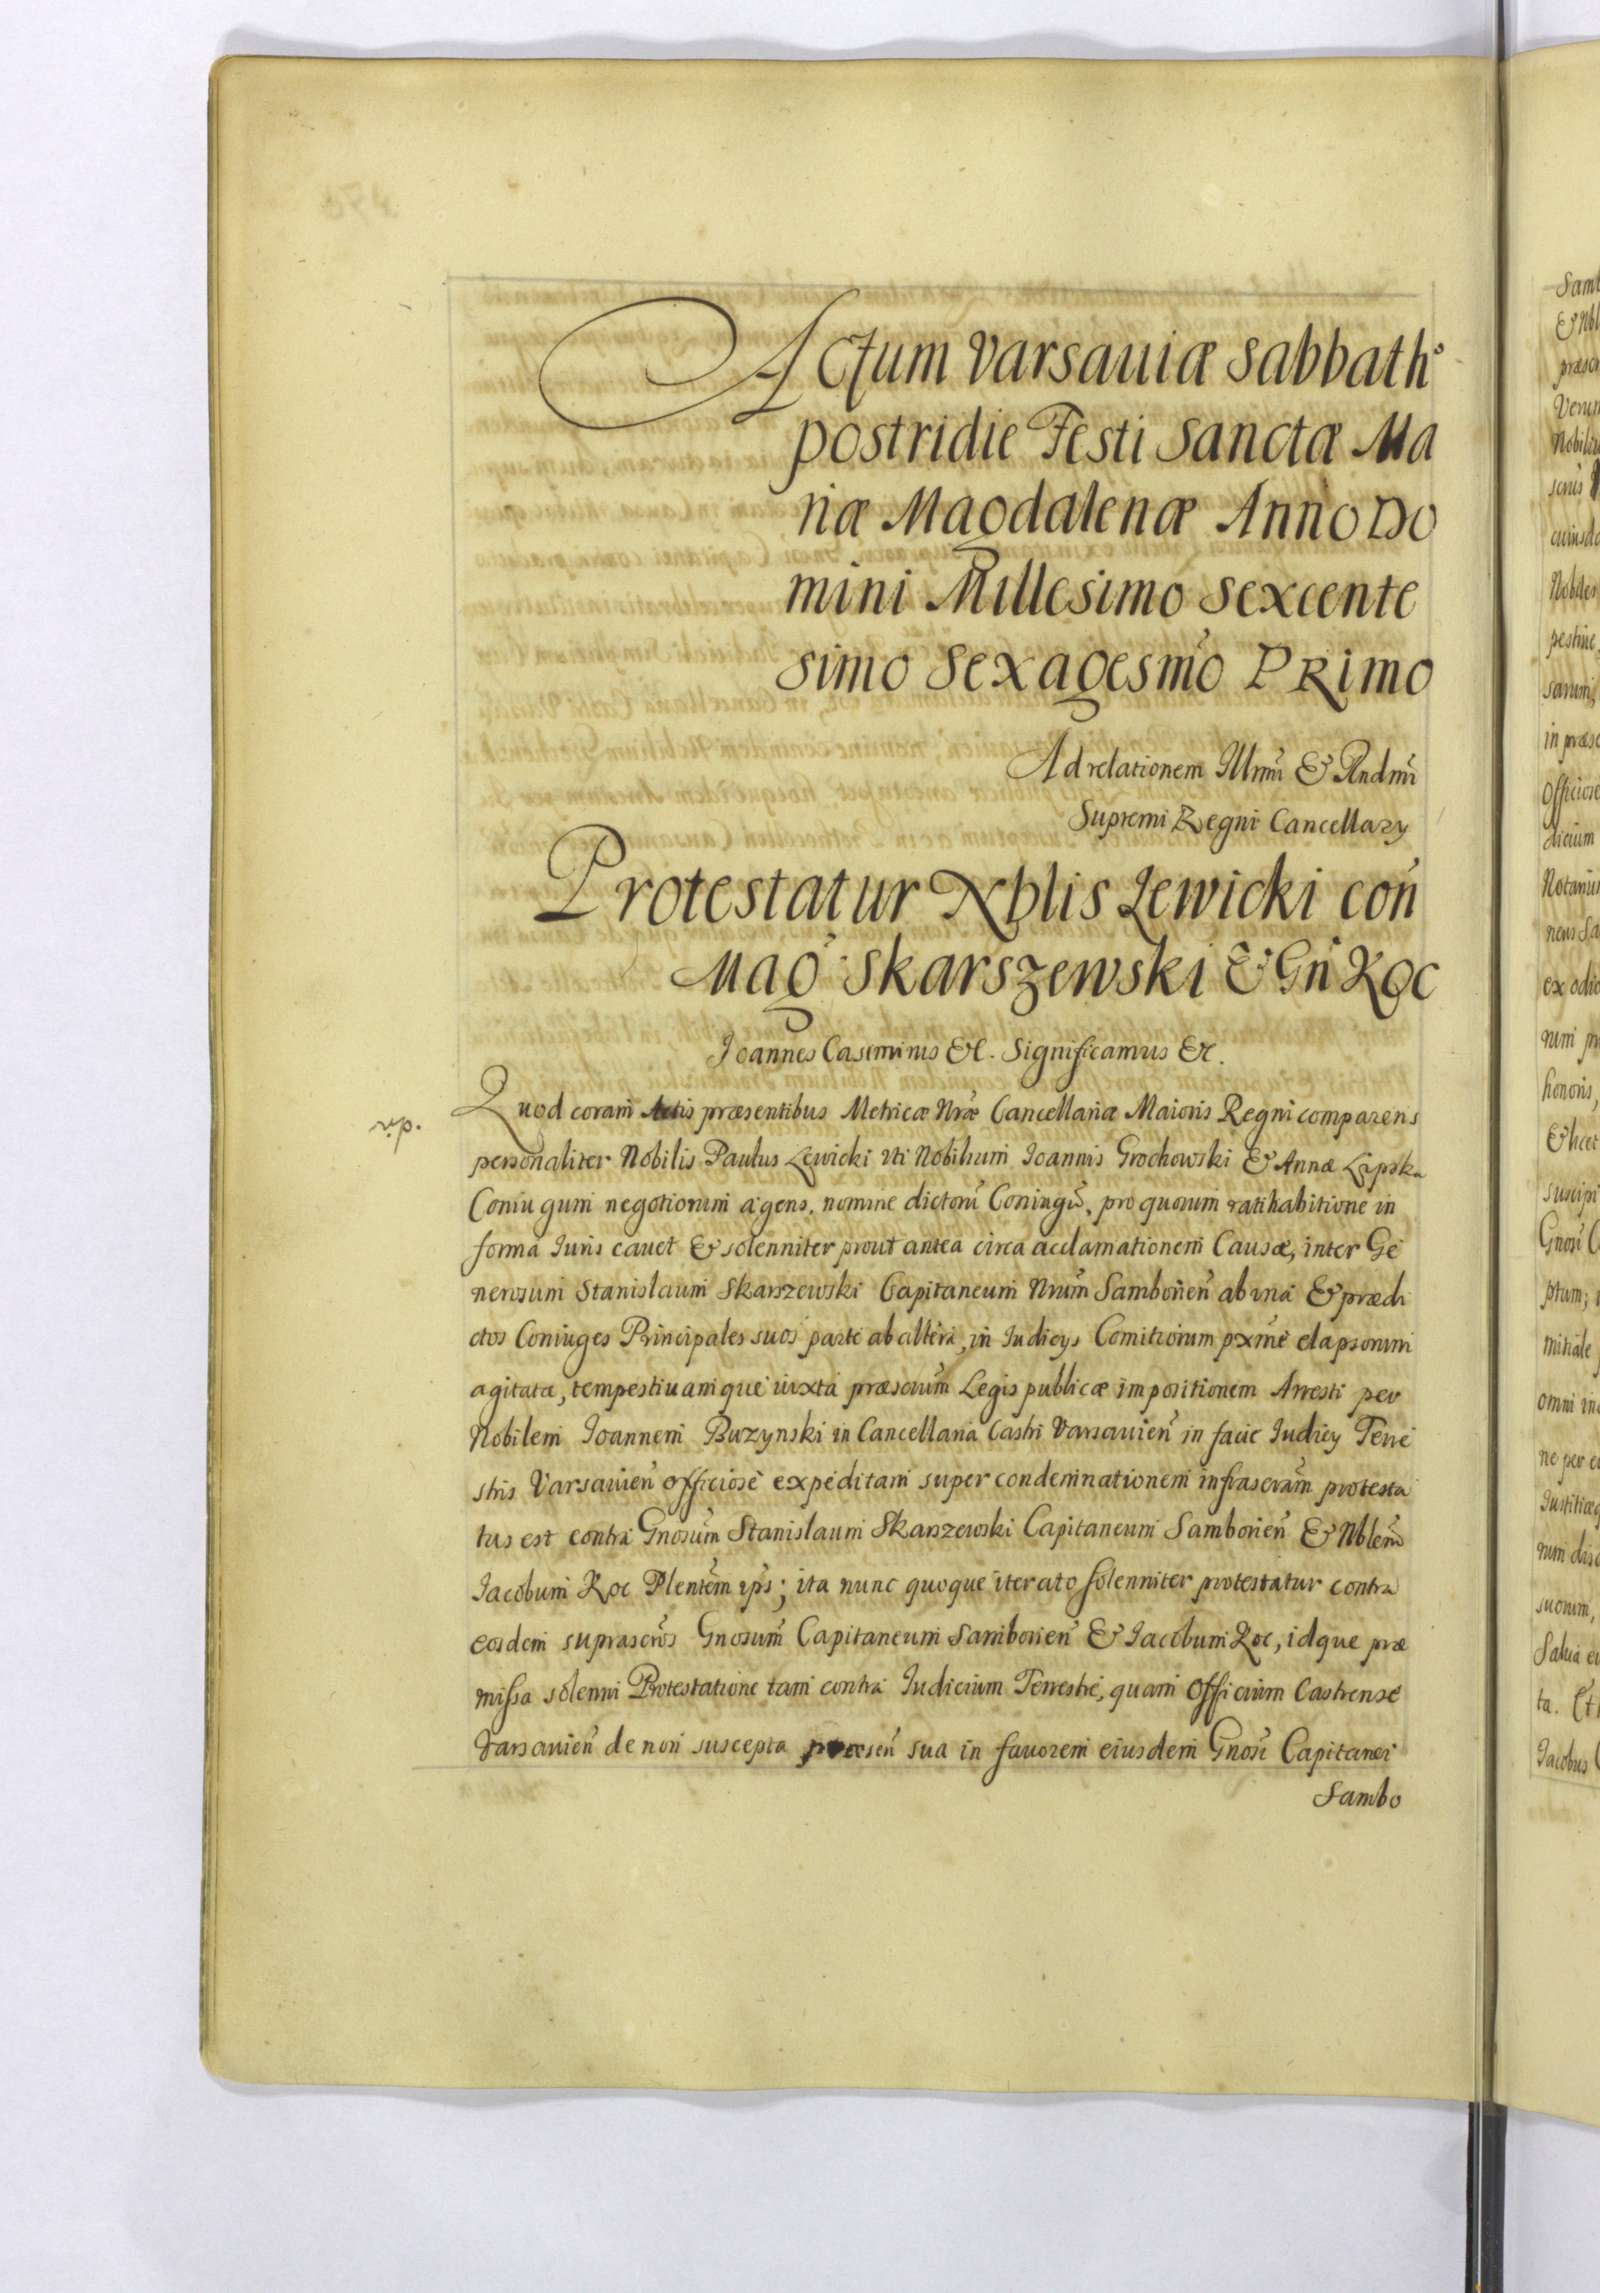 Actum Varsauiæ Sabbath°
postridie Festi Sanctæ Ma
riæ Magdalenæ Anno Do
mini Millesimo Sexcente
simo Sexagesim̃o Primo
Ad relationem Illrmi & Rndmi
Supremi Regni Cancellary
Protestatur Nblis Lewicki con̄
Mag° Skarszewski & Gn̄ Roc
Joannes Casimirus &c. Significamus &c.
Quod coram Actis præsentibus Metricæ Nræ Cancellariæ Maioris Regni comparens
personaliter Nobilis Paulus Lewicki uti Nobilium Joannis Grochowski & Annæ Lipska
Coniugum negotiorum agens, nomine dictorũ Coniugũ, pro quorum ratihabitione in
forma Iuris cauet & solenniter prout antea circa acclamationem Causæ, inter Ge
nerosum Stanislaum Skarszewski Capitaneum Nrum̃ Samborien̄ ab una & prædi
ctos Coniuges Principales suos parte ab altera, in Iudicys Comitiorum pxmẽ elapsorum
agitatæ, tempestiuamque iuxta præscrum̃ Legis publicæ impositionem Arresti per
Nobilem Joannem Buzynski in Cancellaria Castri Varsauien̄ in facie Iudicy Terre
stris Varsauien̄ officiose expeditam super condemnationem infrascram̃ protesta
tus est contra Gnosum̃ Stanislaum Skarszewski Capitaneum Samborien̄ & Nblem̃
Jacobum Roc Plentem̃ ips̃; ita nunc quoque iterato solenniter protestatur contra
eosdem suprascrõs Gnosum̃ Capitaneum Samborien̄ & Jacobum Roc, idque præ
missa solenni Protestatione tam contra Iudicium Terrestre, quam Officium Castrense
Varsauien̄ de non suscepta sua in fauorem eiusdem Gnosi Capitanei
Sambo